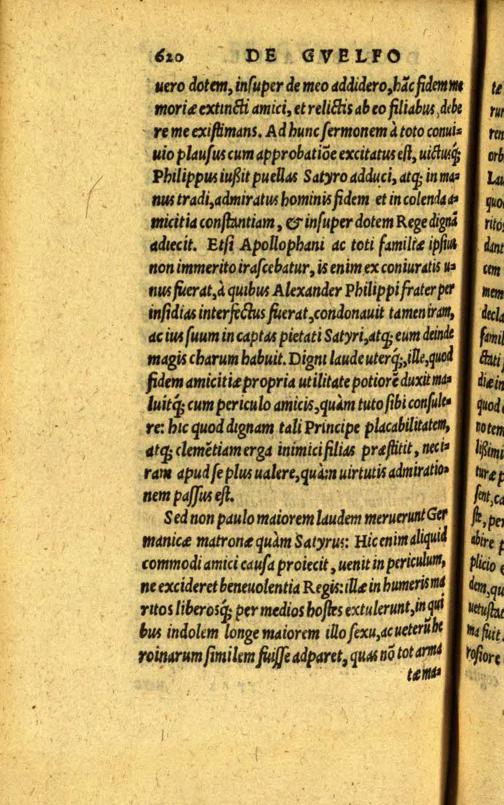 620 DE GVELFO
uero dotem, insuper de meo addidero, hãc fidem me
moriæ extincti amici, et relictis ab eo filiabus debe
re me existimans. Ad hunc sermonem à toto conui=
uio plausus cum approbatiõe excitatus est, uictusq́;
Philippus iußit puellas Satyro adduci, atq; in ma=
nus tradi, admiratus hominis fidem et in colenda a=
micitia constantiam, & insuper dotem Rege dignã
adiecit. Etsi Apollophani ac toti familiæ ipsius
non immerito irascebatur, is enim ex coniuratis u=
nus fuerat, à quibus Alexander Philippi frater per
insidias interfectus fuerat, condonauit tamen iram,
ac ius suum in captas pietati Satyri, atq; eum deinde
magis charum habuit. Digni laude uterq́;, ille, quod
fidem amicitiæ propria utilitate potiorẽ duxit ma=
luitq́; cum periculo amicis, quàm tuto sibi consule=
re: hic quod dignam tali Principe placabilitatem,
atq; clemẽtiam erga inimici filias præstitit, nec i=
ram apud se plus ualere, quàm uirtutis admiratio=
nem passus est.
Sed non paulo maiorem laudem meruerunt Ger
manicæ matronæ quàm Satyrus: Hic enim aliquid
commodi amici causa proiecit, uenit in periculum,
ne excideret beneuolentia Regis: illæ in humeris ma
ritos liberosq́; per medios hostes extulerunt, in qui
bus indolem longe maiorem illo sexu, ac ueterũ he
roinarum similem fuisse adparet, quas nõ tot arma
tæ ma=